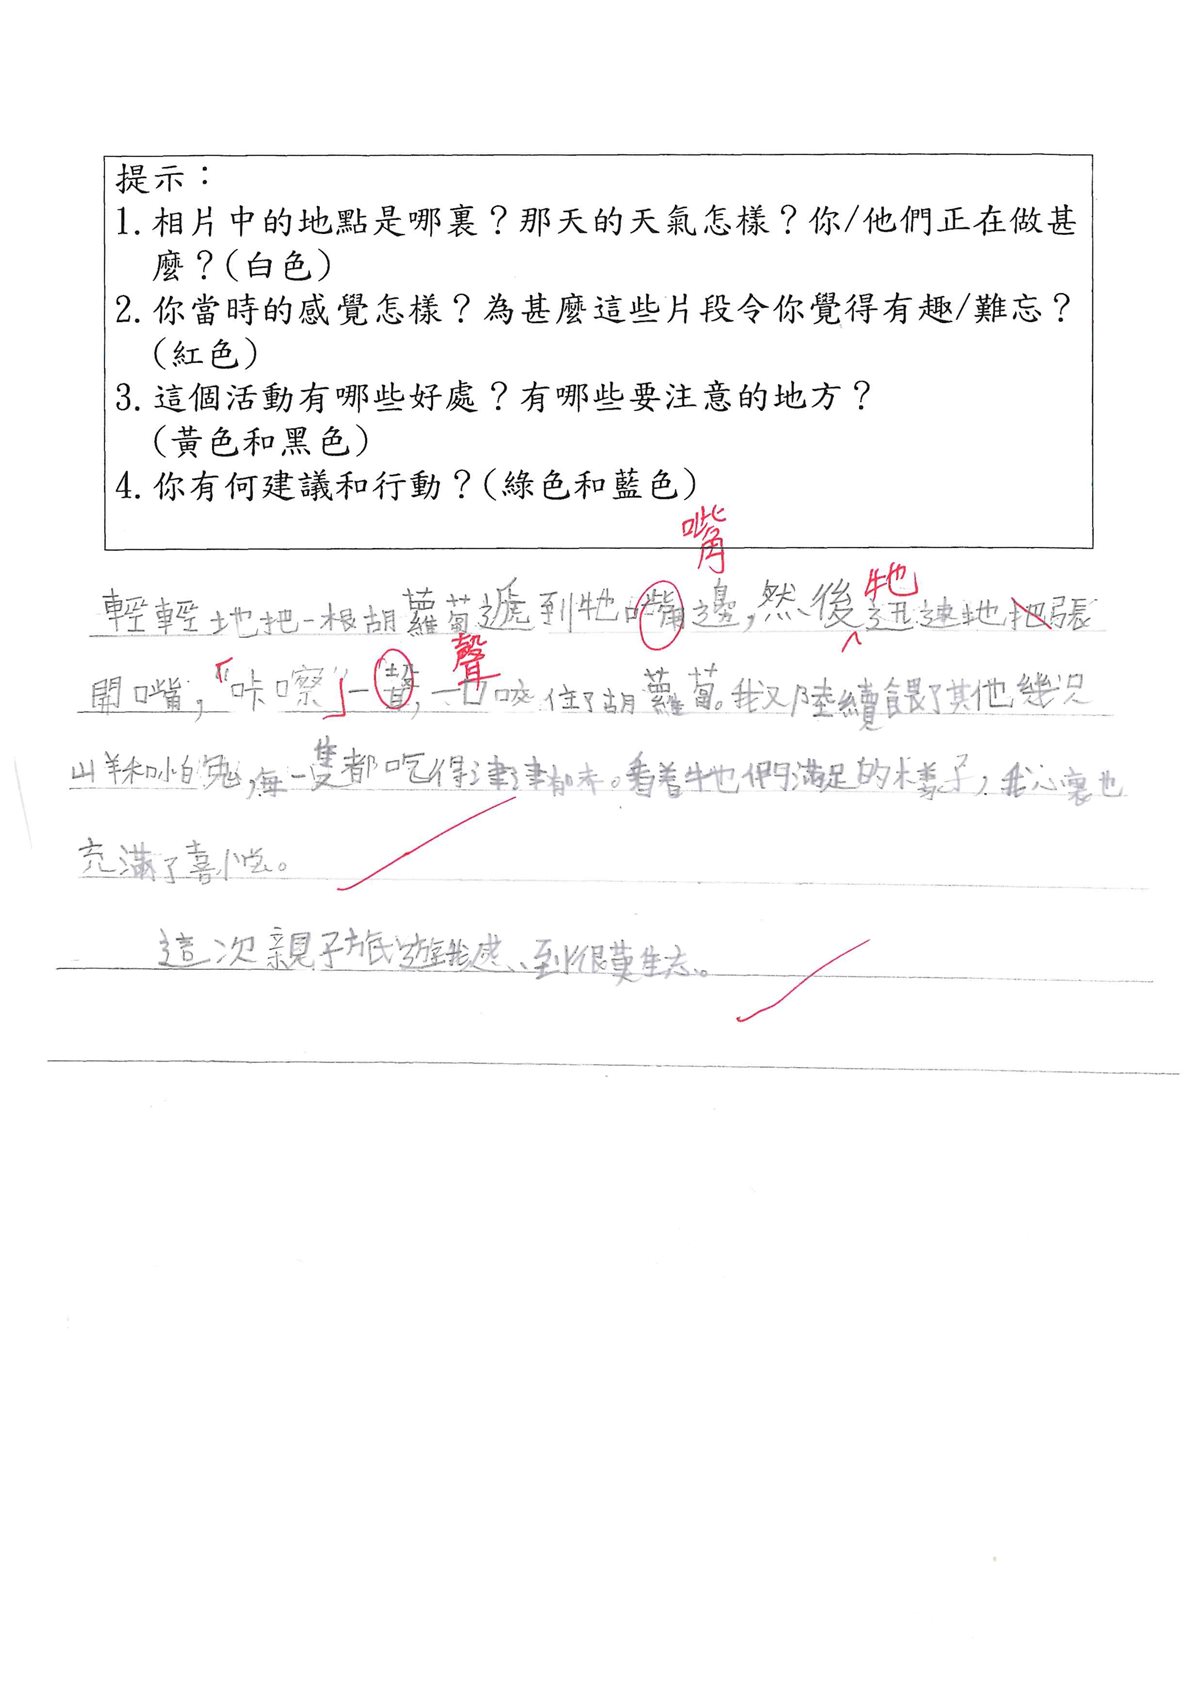 提示：
1. 相片中的地點是哪裏？那天的天氣怎樣？你/他們正在做甚
麼？(白色)
2. 你當時的感覺怎樣？為甚麼這些片段令你覺得有趣/難忘？
(紅色)
3. 這個活動有哪些好處？有哪些要注意的地方？
(黃色和黑色)
4. 你有何建議和行動？(綠色和藍色)
嘴
牠
輕輕地把一根胡蘿蔔遞到牠嘴邊，然後迅速地把張
聲
開嘴，「“咔嚓”」一聲，一口咬住了胡蘿蔔。我又陸續餵了其他幾只
山羊和白兔，每一隻都吃得津津有味。看着牠們滿足的樣子，我心裏也
充滿了喜悅。
這次親子旅遊我感到很難忘。